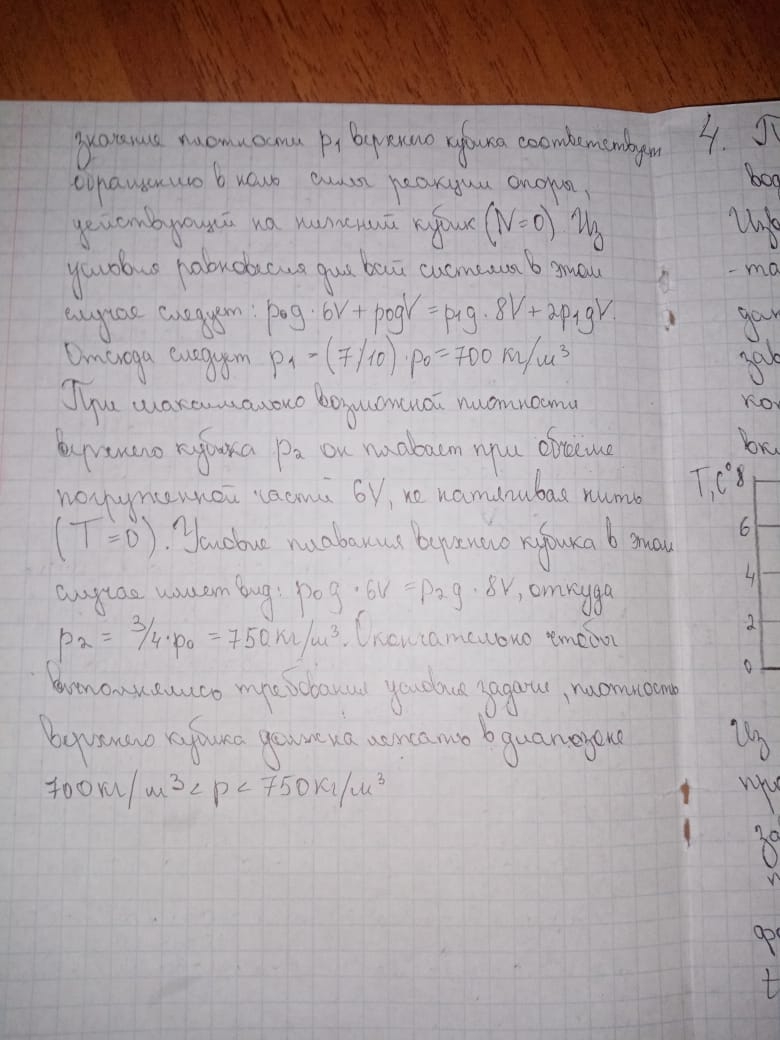 значение плотности ρ₁ верхнего кубика соответствует
обращению в ноль силы реакции опоры,
действующей на нижний кубик (N=0) Из
условия равновесия для всей системы в этом
случае следует: ρ₀g·6V+ρ₀gV=ρ₁g·8V+2ρ₁gV.
Отсюда следует ρ₁=(7/10)·ρ₀=700 кг/м³
При максимально возможной плотности
верхнего кубика ρ₂ он плавает при объёме
погруженной части 6V, не натягивая нить
(T=0). Условие плавания верхнего кубика в этом
случае имеет вид: ρ₀g·6V=ρ₂g·8V, откуда
ρ₂ = 3/4·ρ₀ = 750кг/м³. Окончательно чтобы
выполнялись требования условия задачи, плотность
верхнего кубика должна лежать в диапозоне
700кг/м³<ρ<750кг/м³
4. П
вод
- та
дан
зав
ко
вкл
T,C° 8
6
4
2
0
Из
про
за
п
фо
t